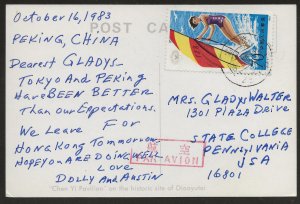 October 16, 1983
POST CA
PEKING, CHINA
Dearest GLADYS-
TOKYO AND PEKING
HAVE BEEN BETTER
Than our Expectations.
We Leave For
Hong Kong Tomorrow
Hope you ARE DOING WELL
Love
DOLLY AND AUSTIN
MRS. GLADYS WALTER
1301 PLAZA DRIVE
STATE COLLEGE
PENNSYLVANIA
USA
16801
PAR AVION
"Chen Yi Pavilion" on the historic site of Diaoyutai